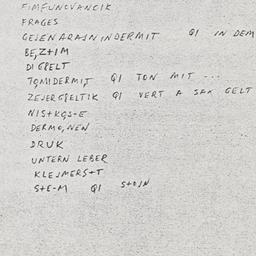 FIMFUNCVANCIK
FRAGES
GEJENARAJNINDERMIT QI IN DEM
BE,Z+IM
DI GELT
TOMIDERMIT QI TON MIT ...
ZEJERGELTIK QI VERT A SAX GELT
NIS+KGS-E
DERMO,NEN
DRUK
UNTERN LEBER
KLEJMERS+T
S+E-M QI S+OJN